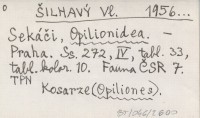 ŠILHAVÝ Vl. 1956...
Sekáči, Opilionidea. —
Praha. Ss. 272, IV, tabl. 33,
tabl. kolor. 10. Fauna ČSR 7.
TPN
Kosarze (Opiliones).